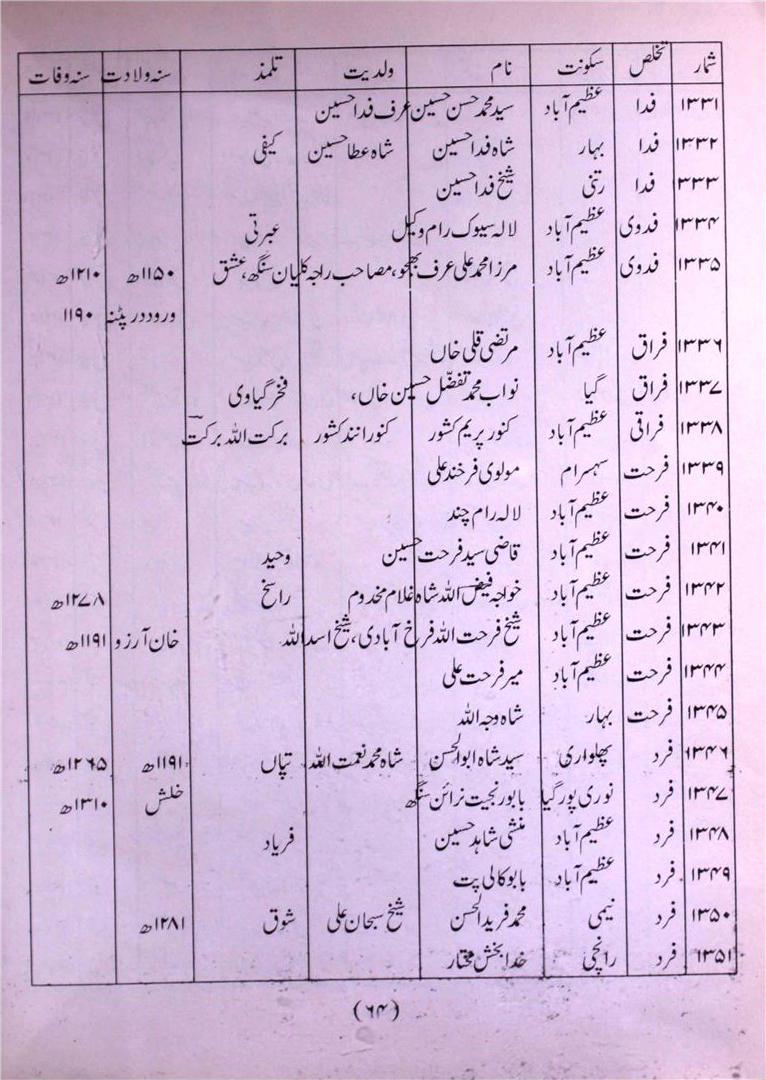 شمار تخلص سکونت نام ولدیت تلمذ سنہ ولادت سنہ وفات
۱۳۳۱ فدا عظیم آباد سید محمد حسن حسین عرف فدا حسین
۱۳۳۲ فدا بہار شاہ فدا حسین شاہ عطا حسین کیفی
۱۳۳۳ فدا رتنی شیخ فدا حسین
۱۳۳۴ فدوی عظیم آباد لالہ سیوک رام وکیل عبرتی
۱۳۳۵ فدوی عظیم آباد مرزا محمد علی عرف بھجو، مصاحب راجہ کلیان سنگھ، عشق ۱۱۵۰ھ ۱۲۱۰ھ
ورود در پٹنہ ۱۱۹۰
۱۳۳۶ فراق عظیم آباد مرتضی قلی خاں
۱۳۳۷ فراق گیا نواب محمد تفضّل حسین خاں، فخر گیاوی
۱۳۳۸ فراقی عظیم آباد کنور پریم کشور کنور انند کشور برکت اللہ برکت
۱۳۳۹ فرحت سہسرام مولوی فرخند علی
۱۳۴۰ فرحت عظیم آباد لالہ رام چند
۱۳۴۱ فرحت عظیم آباد قاضی سید فرحت حسین وحید
۱۳۴۲ فرحت عظیم آباد خواجہ فیض اللہ شاہ غلام مخدوم راسخ ۱۲۷۸ھ
۱۳۴۳ فرحت عظیم آباد شیخ فرحت اللہ فرخ آبادی، شیخ اسد اللہ خان آرزو ۱۱۹۱ھ
۱۳۴۴ فرحت عظیم آباد میر فرحت علی
۱۳۴۵ فرحت بہار شاہ وجہ اللہ
۱۳۴۶ فرد پھلواری سید شاہ ابوالحسن شاہ محمد نعمت اللہ تپاں ۱۱۹۱ھ ۱۲۶۵ھ
۱۳۴۷ فرد نوری پور گیا بابو رنجیت نرائن سنگھ خلش ۱۳۱۰ھ
۱۳۴۸ فرد عظیم آباد منشی شاہد حسین فریاد
۱۳۴۹ فرد عظیم آباد بابو کالی پت
۱۳۵۰ فرد نیمی محمد فرید الحسن شیخ سبحان علی شوق ۱۲۸۱ھ
۱۳۵۱ فرد رانچی خدا بخش مختار
(۶۴)